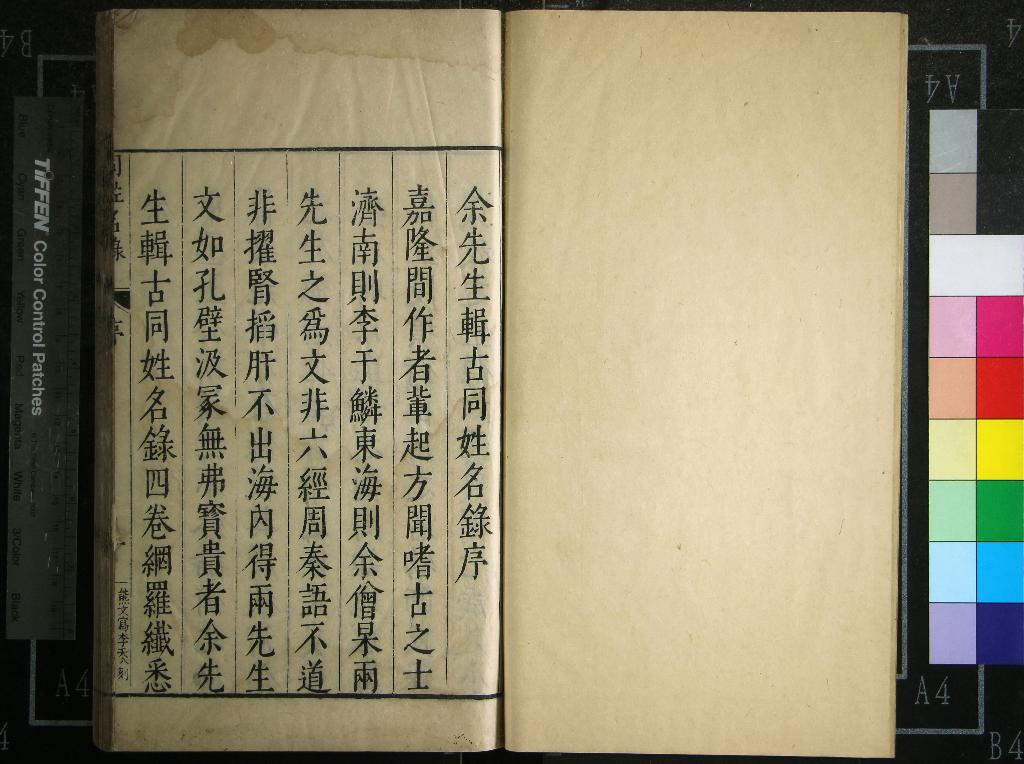 余先生輯古同姓名錄序
嘉隆間作者軰起方聞嗜古之士
濟南則李于鱗東海則余僧杲兩
先生之爲文非六經周秦語不道
非擢腎搯肝不出海內得兩先生
文如孔壁汲冢無弗寶貴者余先
生輯古同姓名錄四卷網羅纖悉
同姓名錄
序
一
TIFFEN Color Control Patches
Blue
Cyan
Green
Yellow
Red
Magenta
White
3/Color
Black
A4
A4
A4
B4
B4